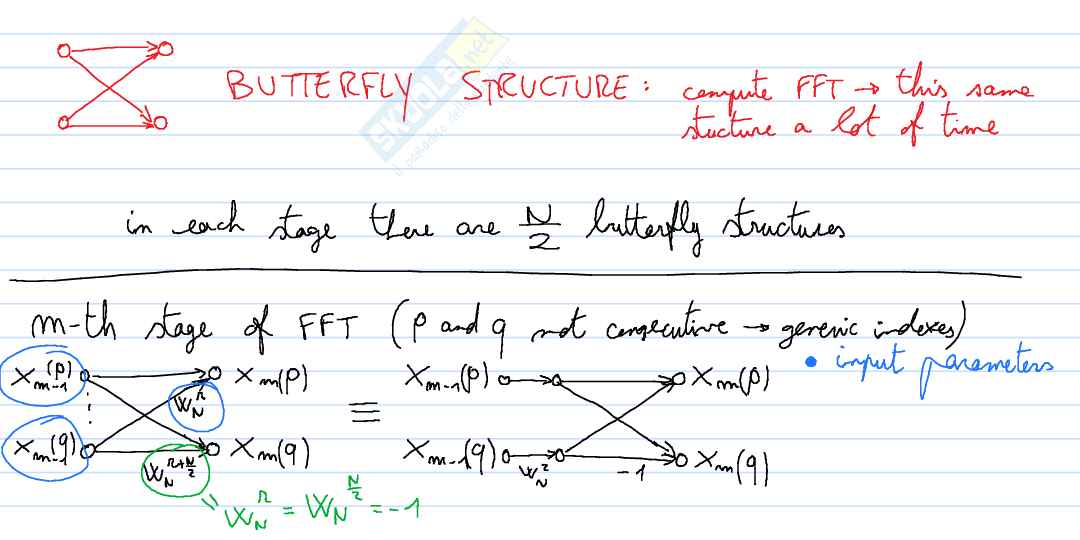 BUTTERFLY STRUCTURE: compute FFT → this same
stucture a lot of time
SKUOLA.net
in each stage there are N/2 butterfly structures
m-th stage of FFT (p and q not consecutive → generic indexes)
• input parameters
X_{m-1}(p) X_m(p) ≡ X_{m-1}(p) X_m(p)
W_N^r
X_{m-1}(q) X_m(q) X_{m-1}(q) X_m(q)
W_N^{r+N/2} W_N^2 -1
W_N^r = W_N^{N/2} = -1